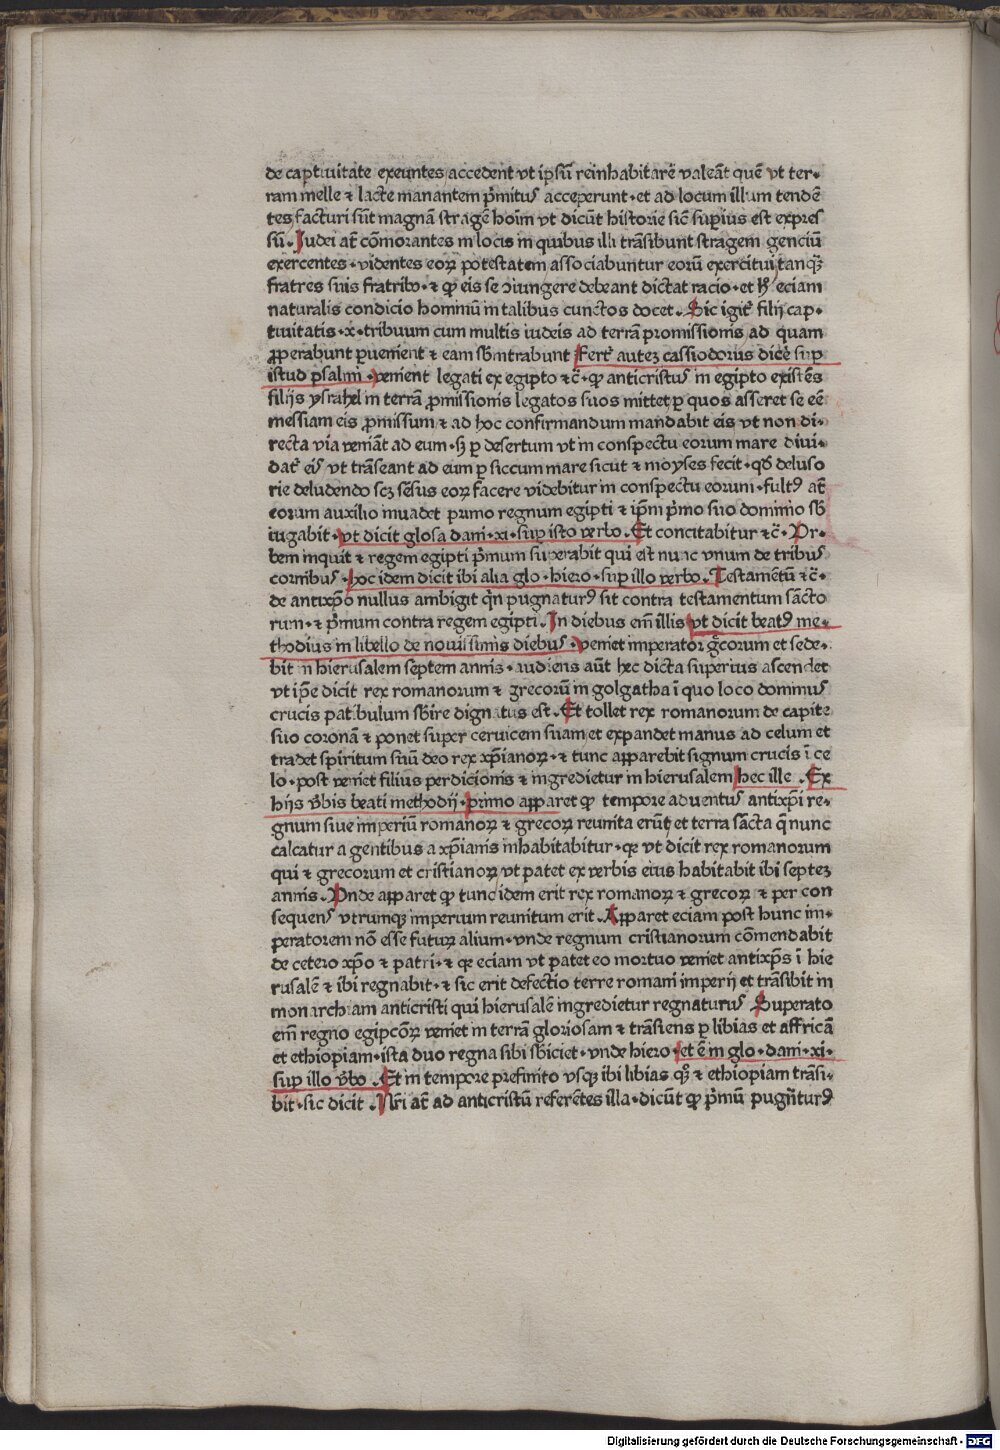 de captiuitate exeuntes accedent vt ipsū reinhabitarē valeāt quē vt ter-
ram melle ⁊ lacte manantem p̄mitus acceperunt·et ad locum illum tendē
tes facturi sūt magnā stragē hoīm vt dicūt historie sicē superius est expres
sū·Iudei at̄ cōmorantes in locis in quibus illi trāsibunt stragem genciū
exercentes·videntes eoꝝ potestatem associabuntur eorū exercitui tanq̄
fratres suis fratribꝰ·⁊ ꝙ eis se ɔiungere debeant dictat racio·et h̄ eciam
naturalis condicio hominū in talibus cunctos docet·Sic igit̄ filij cap-
tiuitatis·x·tribuum cum multis iudeis ad terrā promissionis ad quam
ꝓperabunt peruenient ⁊ eam sb̄intrabunt Fert̄ autez cassiodorus dicē sup
istud psalmi·venient legati ex egipto ⁊c̄·ꝙ anticristus in egipto existēs
filijs ysrahel in terrā ꝓmissionis legatos suos mittet ꝑ quos asseret se eē
messiam eis ꝓmissum ⁊ ad hoc confirmandum mandabit eis vt non di-
recta via veniāt ad eum·sꝫ ꝑ desertum vt in conspectu eorum mare diui-
dat̄ eis vt trāseant ad eum ꝑ siccum mare sicut ⁊ moyses fecit·qd̄ deluso
rie deludendo scꝫ sēsus eoꝝ facere videbitur in conspectu eorum·fultꝰ at̄
eorum auxilio inuadet primo regnum egipti ⁊ ip̄m p̄mo suo dominio sb̄
iugabit·vt dicit glosa dani·xi·sup isto verbo·Et concitabitur ⁊c̄·Vr-
bem inquit ⁊ regem egipti p̄mum superabit qui est nunc vnum de tribus
cornibus·hoc idem dicit ibi alia glo·hiero·sup illo verbo·Testamentū ⁊c̄·
de antixp̄o nullus ambigit q̄n pugnaturꝰ sit contra testamentum sācto
rum·⁊ p̄mum contra regem egipti·In diebus em̄ illis vt dicit beatꝰ me-
thodius in libello de nouissimis diebus·veniet imperator grēcorum et sede-
bit in hierusalem septem annis·audiens aūt hec dicta superius ascendet
vt ip̄e dicit rex romanorum ⁊ grecorū in golgatha ī quo loco dominus
crucis patibulum sb̄ire dignatus est·Et tollet rex romanorum de capite
suo coronā ⁊ ponet super ceruicem suam et expandet manus ad celum et
tradet spiritum suū deo rex xp̄ianoꝝ·⁊ tunc apparebit signum crucis ī ce
lo·post veniet filius perdicionis ⁊ ingredietur in hierusalem hec ille·Ex
hijs v̄bis beati methodij·primo apparet ꝙ tempore aduentus antixp̄i re-
gnum siue imperiū romanoꝝ ⁊ grecoꝝ reunita erūt et terra sācta q̄ nunc
calcatur a gentibus a xp̄ianis inhabitabitur·qꝛ vt dicit rex romanorum
qui ⁊ grecorum et cristianoꝝ vt patet ex verbis eius habitabit ibi septez
annis·Vnde apparet ꝙ tunc idem erit rex romanoꝝ ⁊ grecoꝝ ⁊ per con
sequens vtrumqꝫ imperium reunitum erit·Apparet eciam post hunc im-
peratorem nō esse futuꝝ alium·vnde regnum cristianorum cōmendabit
de cetero xp̄o ⁊ patri·⁊ qꝛ eciam vt patet eo mortuo veniet antixp̄s ī hie
rusalē ⁊ ibi regnabit·⁊ sic erit defectio terre romani imperij et trāsibit in
monarchiam anticristi qui hierusalē ingredietur regnaturus Superato
em̄ regno egipcōꝝ veniet in terrā gloriosam ⁊ trāsiens ꝑ libias et affricā
et ethiopiam·ista duo regna sibi sb̄iciet·vnde hiero·et ē in glo·dani·xi·
sup illo v̄bo·Et in tempore prefinito vsqꝫ ibi libias qꝫ ⁊ ethiopiam trāsi-
bit·sic dicit·Nr̄i at̄ ad anticristū referētes illa·dicūt ꝙ p̄mū pugn̄turꝰ
Digitalisierung gefördert durch die Deutsche Forschungsgemeinschaft - DFG